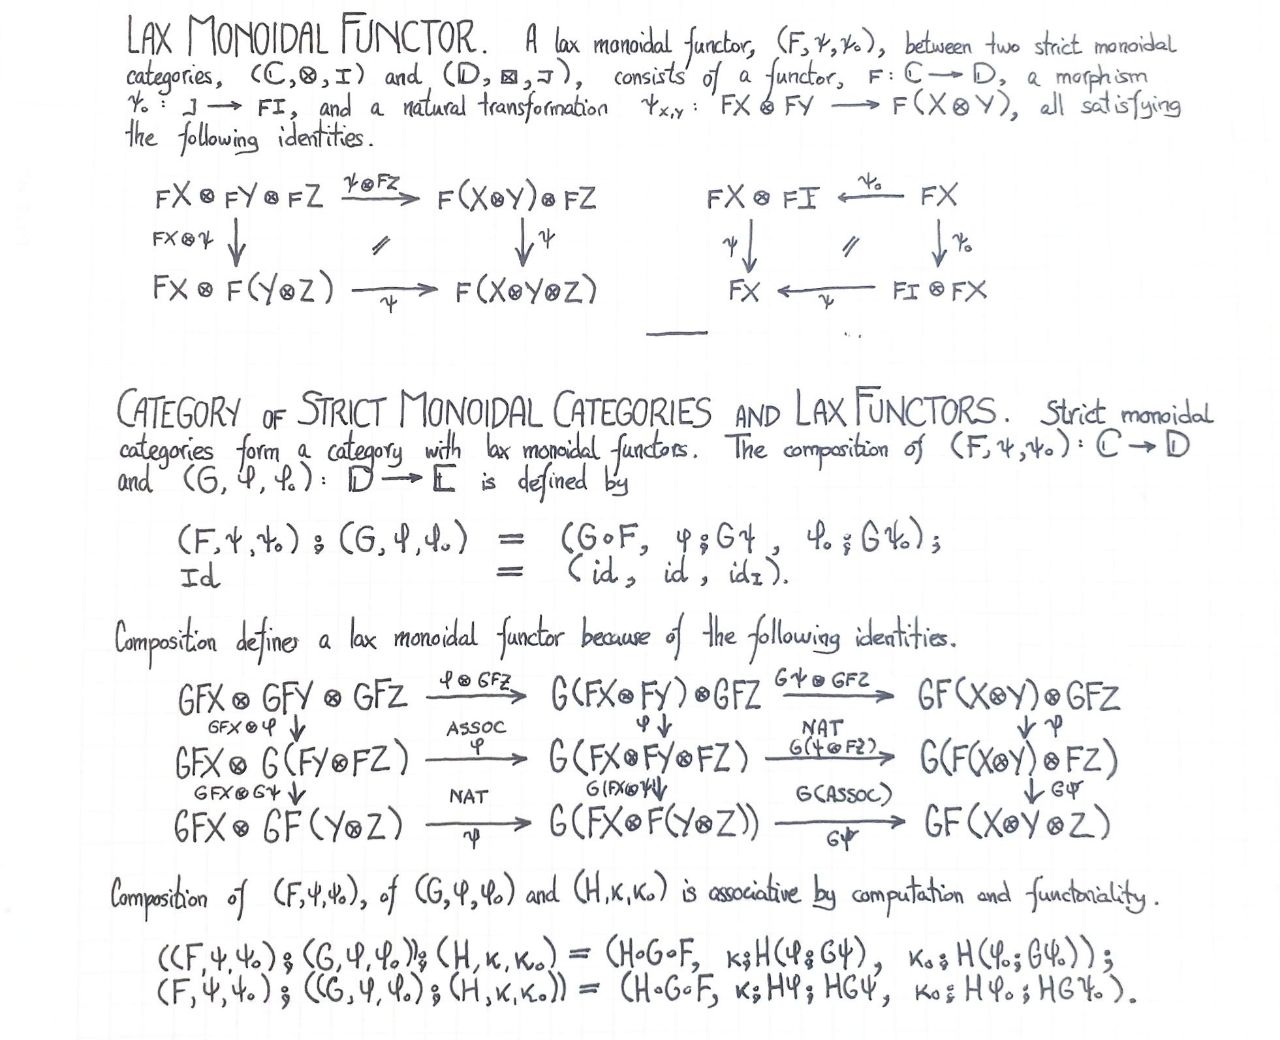 LAX MONOIDAL FUNCTOR. A lax monoidal functor, (F,ψ,ψ₀), between two strict monoidal
categories, (ℂ,⊗,I) and (𝔻,⊠,J), consists of a functor, F: ℂ → 𝔻, a morphism
ψ₀ : J → FI, and a natural transformation ψx,y : FX ⊗ FY → F(X⊗Y), all satisfying
the following identities.
FX ⊗ FY ⊗ FZ ψ⊗FZ → F(X⊗Y)⊗ FZ FX ⊗ FI ←ψ₀ FX
FX⊗ψ ↓ // ↓ψ ψ↓ // ↓ψ₀
FX ⊗ F(Y⊗Z) →ψ F(X⊗Y⊗Z) FX ←ψ FI ⊗ FX
CATEGORY OF STRICT MONOIDAL CATEGORIES AND LAX FUNCTORS. Strict monoidal
categories form a category with lax monoidal functors. The composition of (F,ψ,ψ₀): ℂ → 𝔻
and (G, φ, φ₀): 𝔻 → 𝔼 is defined by
(F,ψ,ψ₀) ⨟ (G,φ,φ₀) = (G∘F, φ⨟Gψ, φ₀⨟Gψ₀);
Id = (id, id, id_I).
Composition defines a lax monoidal functor because of the following identities.
GFX ⊗ GFY ⊗ GFZ φ⊗GFZ → G(FX⊗FY)⊗GFZ Gψ⊗GFZ → GF(X⊗Y)⊗GFZ
GFX⊗φ ↓ ASSOC φ↓ NAT ↓ φ
GFX ⊗ G(FY⊗FZ) φ→ G(FX⊗FY⊗FZ) G(ψ⊗FZ)→ G(F(X⊗Y)⊗FZ)
GFX⊗Gψ ↓ NAT G(FX⊗ψ)↓ G(ASSOC) ↓ Gψ
GFX ⊗ GF(Y⊗Z) →φ G(FX⊗F(Y⊗Z)) →Gψ GF(X⊗Y⊗Z)
Composition of (F,ψ,ψ₀), of (G,φ,φ₀) and (H,κ,κ₀) is associative by computation and functoriality.
((F,ψ,ψ₀)⨟(G,φ,φ₀))⨟(H,κ,κ₀) = (H∘G∘F, κ⨟H(φ⨟Gψ), κ₀⨟H(φ₀⨟Gψ₀));
(F,ψ,ψ₀)⨟((G,φ,φ₀)⨟(H,κ,κ₀)) = (H∘G∘F, κ⨟Hφ⨟HGψ, κ₀⨟Hφ₀⨟HGψ₀).